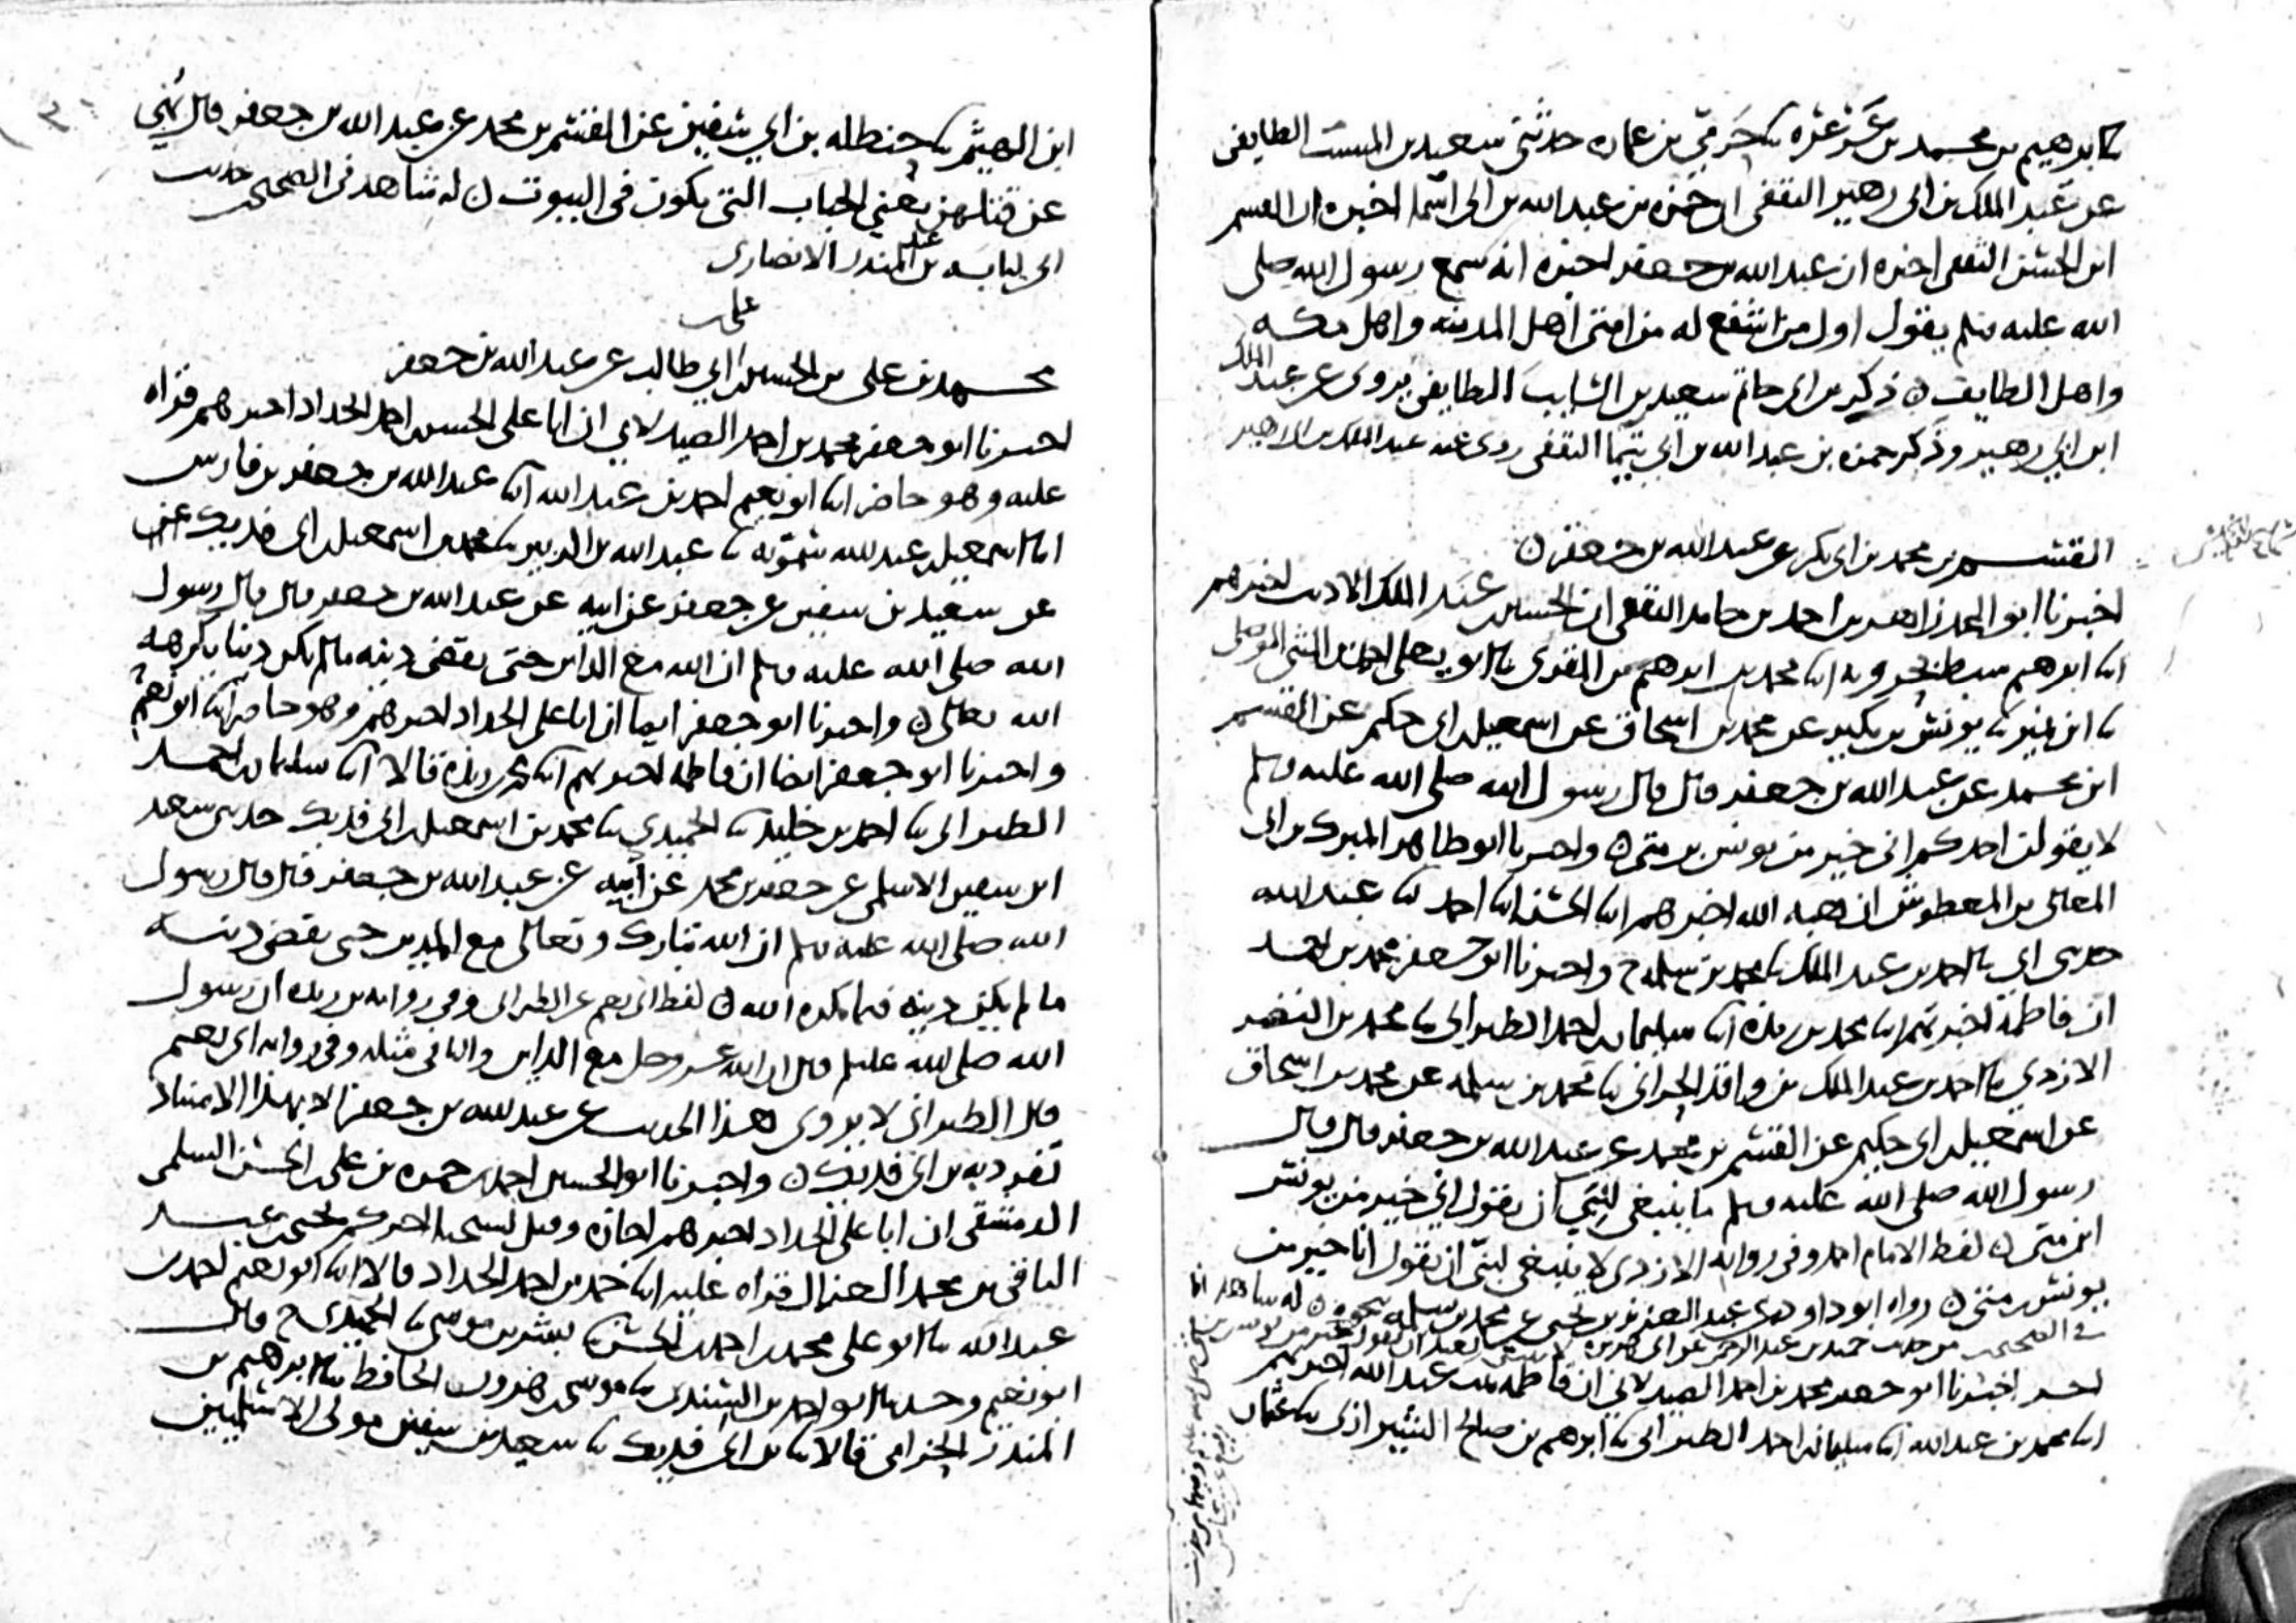 ابرهيم بن محمد بن عرعره حرمي بن عماره حدثني سعيد بن الطايفي
عن عبد الملك بن ابي زهير الثقفي ان حمزه بن عبد الله بن ابي اسما اخبره ان القسم
ابن الحسن الثقفي اخبره ان عبد الله بن جعفر اخبره انه سمع رسول الله صلى
الله عليه وسلم يقول اول من اشفع له من امتي اهل المدينه واهل مكه
واهل الطايف ذكر بن ابي حاتم سعيد بن السايب الطايفي يروي عن عبد الملك
ابن ابي زهير وذكر حمزه بن عبد الله بن ابي الثقفي روى عنه عبد الملك بن ابي زهير
القسم بن محمد بن ابي بكر عن عبد الله بن جعفر
اخبرنا ابو المجد زاهر بن احمد بن حامد الثقفي ان الحسين بن عبد الملك الاديب اخبرهم
ابنا ابرهيم سبط بحرويه ابنا محمد بن ابرهيم بن المقرى ابو يعلى احمد بن المثنى الموصلي
ابن نمير يونس بن بكير عن محمد بن اسحاق عن اسمعيل بن ابي حكيم عن القسم
ابن محمد عن عبد الله بن جعفر قال قال رسول الله صلى الله عليه وسلم
لا يقولن احدكم اني خير من يونس بن متى واخبرنا ابو طاهر المبارك بن ابي
المعالي بن المعطوش ان هبه الله اخبرهم ابنا الحسن ابنا احمد عبد الله
حدثني ابي احمد بن عبد الملك محمد بن سلمه ح واخبرنا ابو جعفر محمد بن احمد
ان فاطمة اخبرتهم ابنا محمد بن ريذه ابنا سليمان بن احمد الطبراني محمد بن النضر
الازدي احمد بن عبد الملك بن واقد الحراني محمد بن سلمه عن محمد بن اسحاق
عن اسمعيل بن ابي حكيم عن القسم بن محمد عن عبد الله بن جعفر قال قال
رسول الله صلى الله عليه وسلم ما ينبغي لنبي ان يقول اني خير من يونس
ابن متى لفظ الامام احمد وفي روايه الازدي لا ينبغي لنبي ان يقول انا خير من
يونس بن متى رواه ابو داود عن عبد العزيز بن يحيى عن محمد بن سلمه بنحوه له شاهد
في الصحيحين من حديث حميد بن عبد الرحمن عن ابي هريره لا ينبغي لعبد ان يقول انا خير من يونس بن متى
اخبرنا ابو جعفر محمد بن احمد الصيدلاني ان فاطمه بنت عبد الله اخبرتهم
ابنا محمد بن عبد الله ابنا سليمان بن احمد الطبراني ابرهيم بن صالح الشيرازي عثمان
ابن الهيثم حنظله بن ابي سفين عن القسم بن محمد عن عبد الله بن جعفر قال نهي
عن قتلهن يعني الجنان التي يكون في البيوت له شاهد في الصحيحين حديث
ابي لبابه بن عبد المنذر الانصاري
محمد بن علي بن الحسين بن علي بن ابي طالب عن عبد الله بن جعفر
اخبرنا ابو جعفر محمد بن احمد الصيدلاني ان ابا علي الحسن بن احمد الحداد اخبرهم قراه
عليه وهو حاضر ابنا ابو نعيم احمد بن عبد الله ابنا عبد الله بن جعفر بن فارس
اسمعيل بن عبد الله سمويه عبد الله بن الزبير محمد بن اسمعيل بن ابي فديك عن
عن سعيد بن سفين عن جعفر عن ابيه عن عبد الله بن جعفر قال قال رسول
الله صلى الله عليه وسلم ان الله مع الداين حتى يقضي دينه ما لم يكن دينا يكرهه
الله تعالى واخبرنا ابو جعفر ايضا ان ابا علي الحداد اخبرهم وهو حاضر ابنا ابو نعيم
واخبرنا ابو جعفر ايضا ان فاطمه اخبرتهم ابنا بن ريذه قالا ابنا سليمان بن احمد
الطبراني احمد بن خليد الحميدي محمد بن اسمعيل بن ابي فديك حدثني سعيد
ابن سفين الاسلمي عن جعفر بن محمد عن ابيه عن عبد الله بن جعفر قال قال رسول
الله صلى الله عليه وسلم ان الله تبارك وتعالى مع المدين حتى يقضي دينه
ما لم يكن دينه فيما يكره الله لفظ ابي نعيم عن الطبراني وفي روايه بن ريذه ان رسول
الله صلى الله عليه وسلم قال ان الله عز وجل مع الداين والباقي مثله وفي روايه ابي نعيم
قال الطبراني لا يروى هذا الحديث عن عبد الله بن جعفر الا بهذا الاسناد
تفرد به بن ابي فديك واخبرنا ابو الحسين احمد بن حمزه بن علي بن الحسن السلمي
الدمشقي ان ابا علي الحداد اخبرهم اجازه وقيل له اخبركم يحيى بن عبد
الباقي بن محمد الغزال قراه عليه ابنا حمد بن احمد الحداد قالا ابنا ابو نعيم احمد بن
عبد الله ابو علي محمد بن احمد بن الحسن بشر بن موسى الحميدي ح وقال
ابو نعيم وحدثنا ابو احمد بن موسى بن هرون الحافظ ابرهيم بن
المنذر الحزامي قالا بن ابي فديك سعيد بن سفين مولى الاسلميين